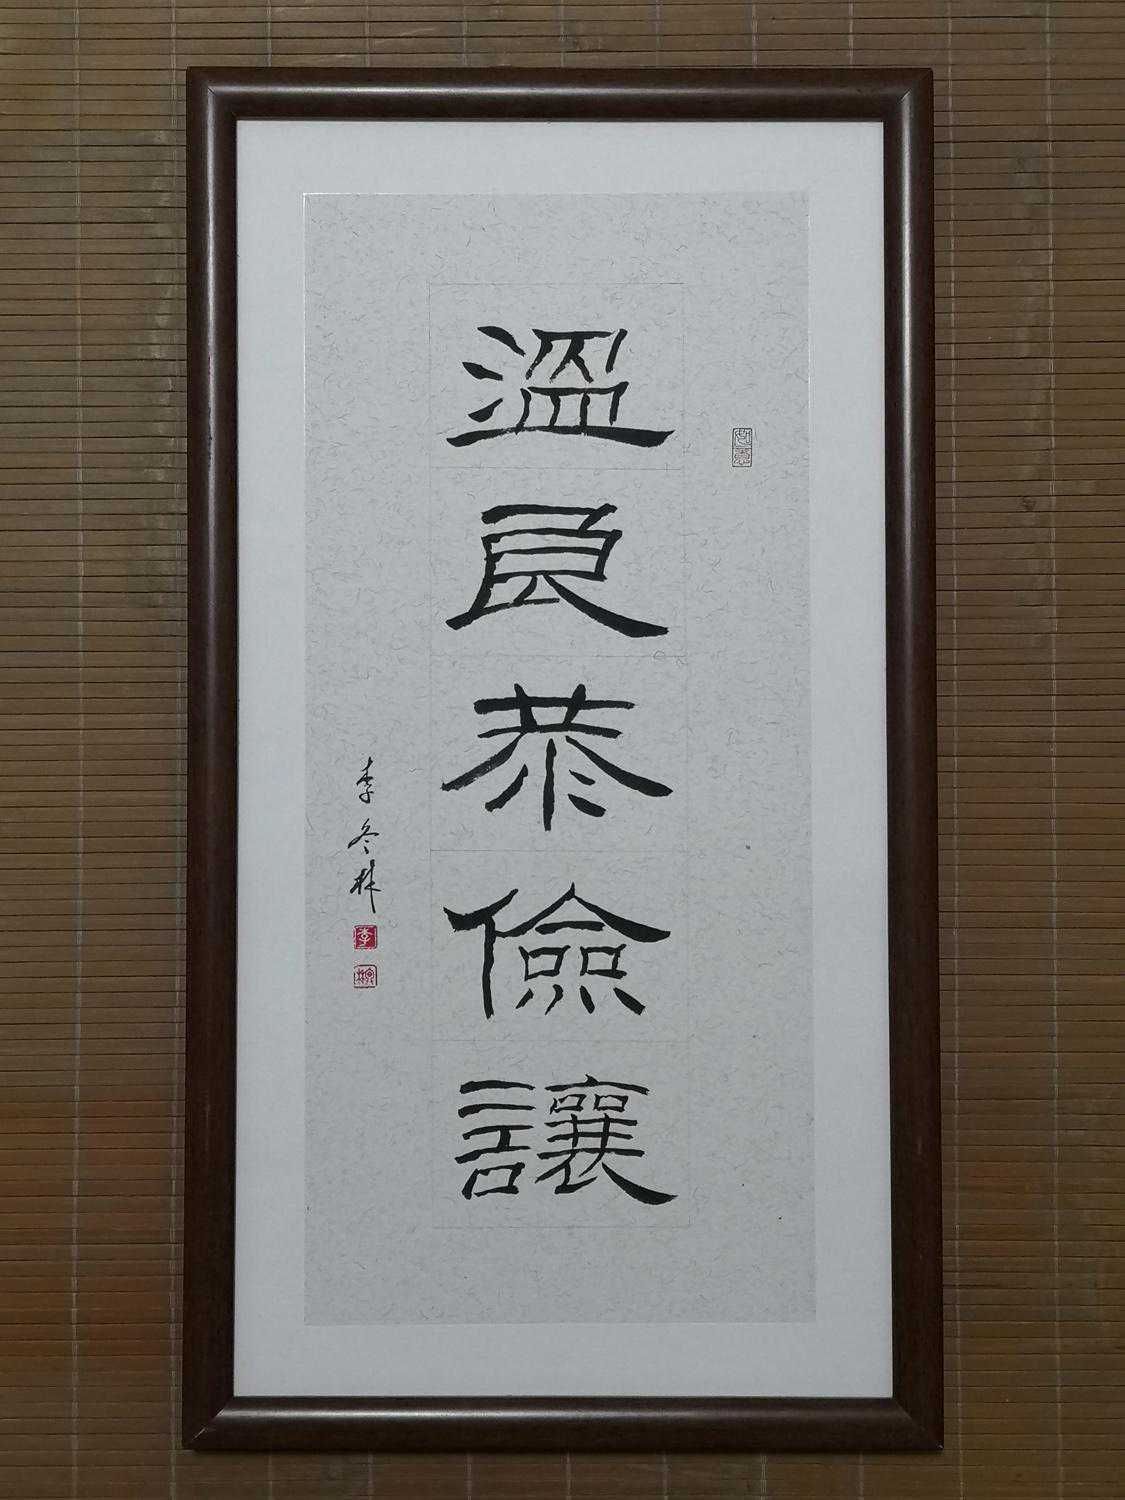 溫良恭儉讓
李冬林
李